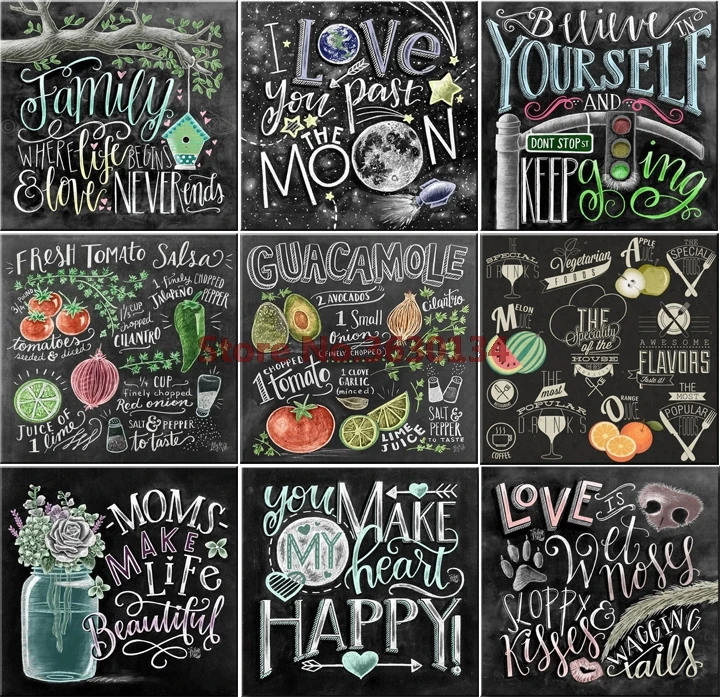 Family
WHERE life BEGINS
& love NEVER ends
I LOVE
you past
THE
MOON
Believe IN
YOURSELF
AND
DONT STOP ST
KEEP going
FRESH TOMATO SALSA
3/4 Pound
tomatoes
seeded & diced
1 Finely CHOPPED
JALAPEÑO PEPPER
1 1/2 CUP
chopped
CILANTRO
JUICE OF
1 lime
1/4 CUP
Finely chopped
Red onion
SALT & PEPPER
to taste
GUACAMOLE
2 AVOCADOS
1 Small
onion
FINELY CHOPPED
cilantro
1 CHOPPED
tomato
1 CLOVE
GARLIC
(minced)
LIME
JUICE
SALT &
PEPPER
TO TASTE
THE
SPECIAL
DRINKS
Vegetarian
FOODS
APPLE
JUICE
THE
SPECIAL
FOODS
MELON
JUICE
THE
Speciality
of the
HOUSE
AWESOME
FLAVORS
Taste it!
THE
most
POPULAR
DRINKS
ORANGE
JUICE
THE
MOST
POPULAR
FOODS
COFFEE
MOMS
MAKE
LIFE
Beautiful
you MAKE
MY heart
HAPPY!
LOVE IS
Wet
noses
SLOPPY
Kisses &
WAGGING
tails